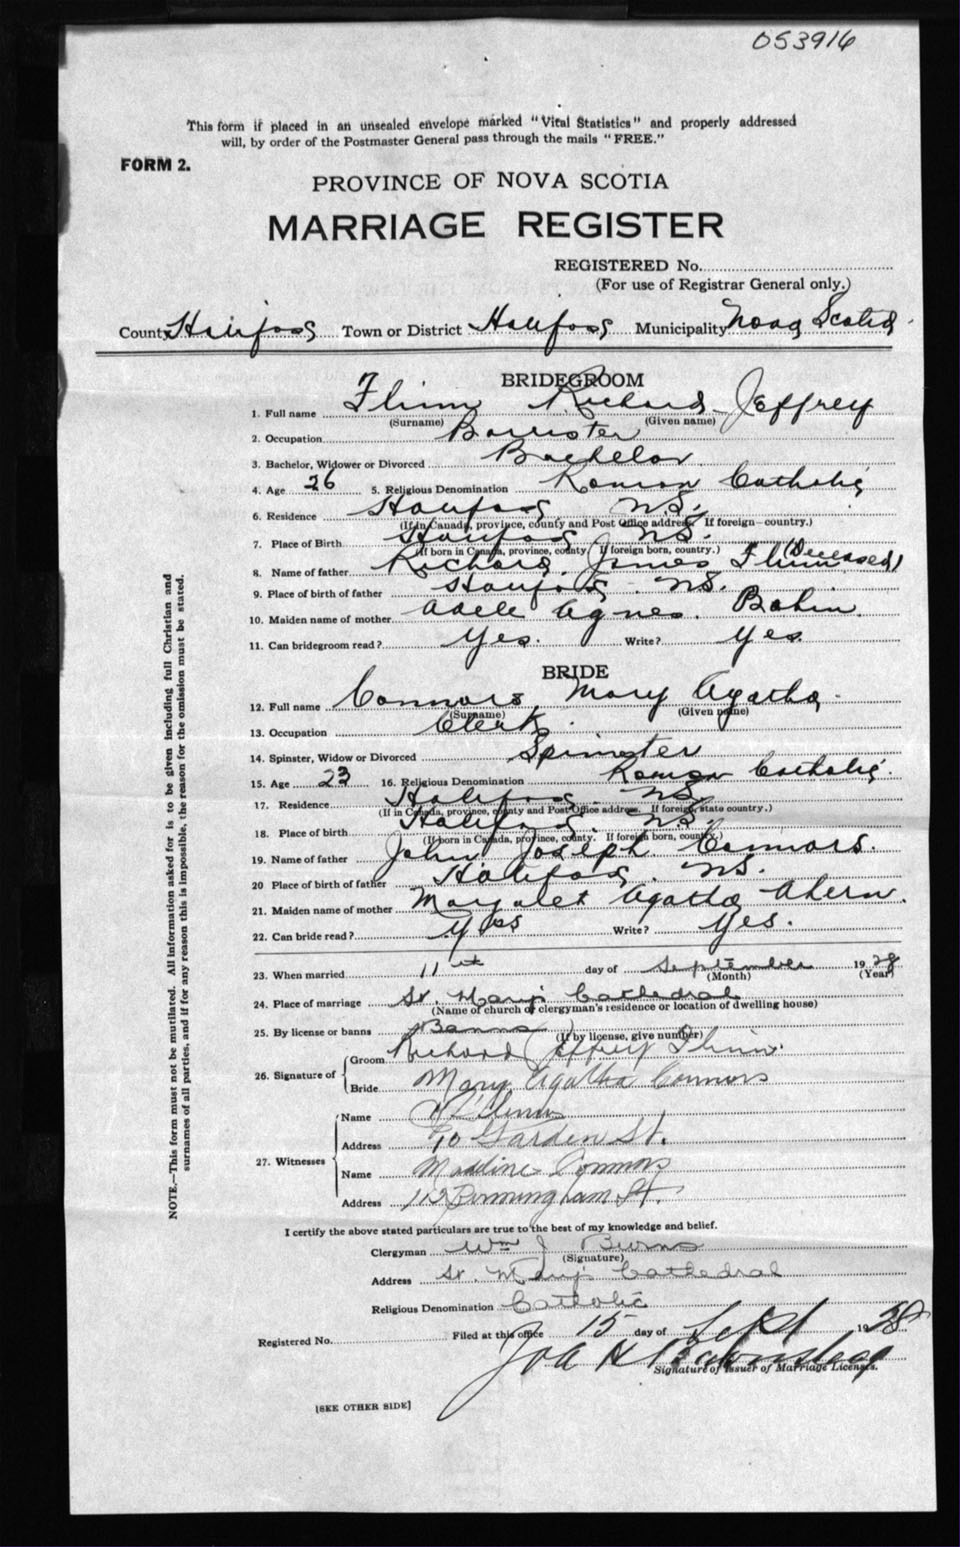 053916
This form if placed in an unsealed envelope marked "Vital Statistics" and properly addressed
will, by order of the Postmaster General pass through the mails "FREE."
FORM 2.
PROVINCE OF NOVA SCOTIA
MARRIAGE REGISTER
REGISTERED No.
(For use of Registrar General only.)
County Halifax Town or District Halifax Municipality Nova Scotia
BRIDEGROOM
1. Full name Flinn Richard Jeffrey
(Surname) (Given name)
2. Occupation Barrister
3. Bachelor, Widower or Divorced Bachelor
4. Age 26 5. Religious Denomination Roman Catholic
6. Residence Halifax N.S.
(If in Canada, province, county and Post Office address. If foreign—country.)
7. Place of Birth Halifax N.S.
(If born in Canada, province, county. If foreign born, country.)
8. Name of father Richard James Flinn (Deceased)
9. Place of birth of father Halifax N.S.
10. Maiden name of mother Adele Agnes
11. Can bridegroom read? Yes. Write? Yes
BRIDE
12. Full name Connors Mary Agatha
(Surname) (Given name)
13. Occupation Clerk
14. Spinster, Widow or Divorced Spinster
15. Age 23 16. Religious Denomination Roman Catholic
17. Residence Halifax N.S.
(If in Canada, province, county and Post Office address. If foreign, state country.)
18. Place of birth Halifax N.S.
(If born in Canada, province, county. If foreign born, country.)
19. Name of father John Joseph Connors.
20 Place of birth of father Halifax N.S.
21. Maiden name of mother Margaret Agatha Ahern.
22. Can bride read? Yes Write? Yes.
23. When married 11th day of September 1928
(Month) (Year)
24. Place of marriage St. Mary's Cathedral
(Name of church or clergyman's residence or location of dwelling house)
25. By license or banns Banns
(If by license, give number)
26. Signature of
Groom Richard Jeffrey Flinn.
Bride Mary Agatha Connors
27. Witnesses
Name Flinn
Address 90 Garden St.
Name Madeline Connors
Address 112 Birmingham St.
I certify the above stated particulars are true to the best of my knowledge and belief.
Clergyman Wm J Burns
(Signature)
Address St. Mary's Cathedral
Religious Denomination Catholic
Registered No. Filed at this office 15 day of Sept 1928
Signature of Issuer of Marriage Licenses.
[SEE OTHER SIDE]
NOTE.—This form must not be mutilated. All information asked for is to be given including full Christian and
surnames of all parties, and if for any reason this is impossible, the reason for the omission must be stated.